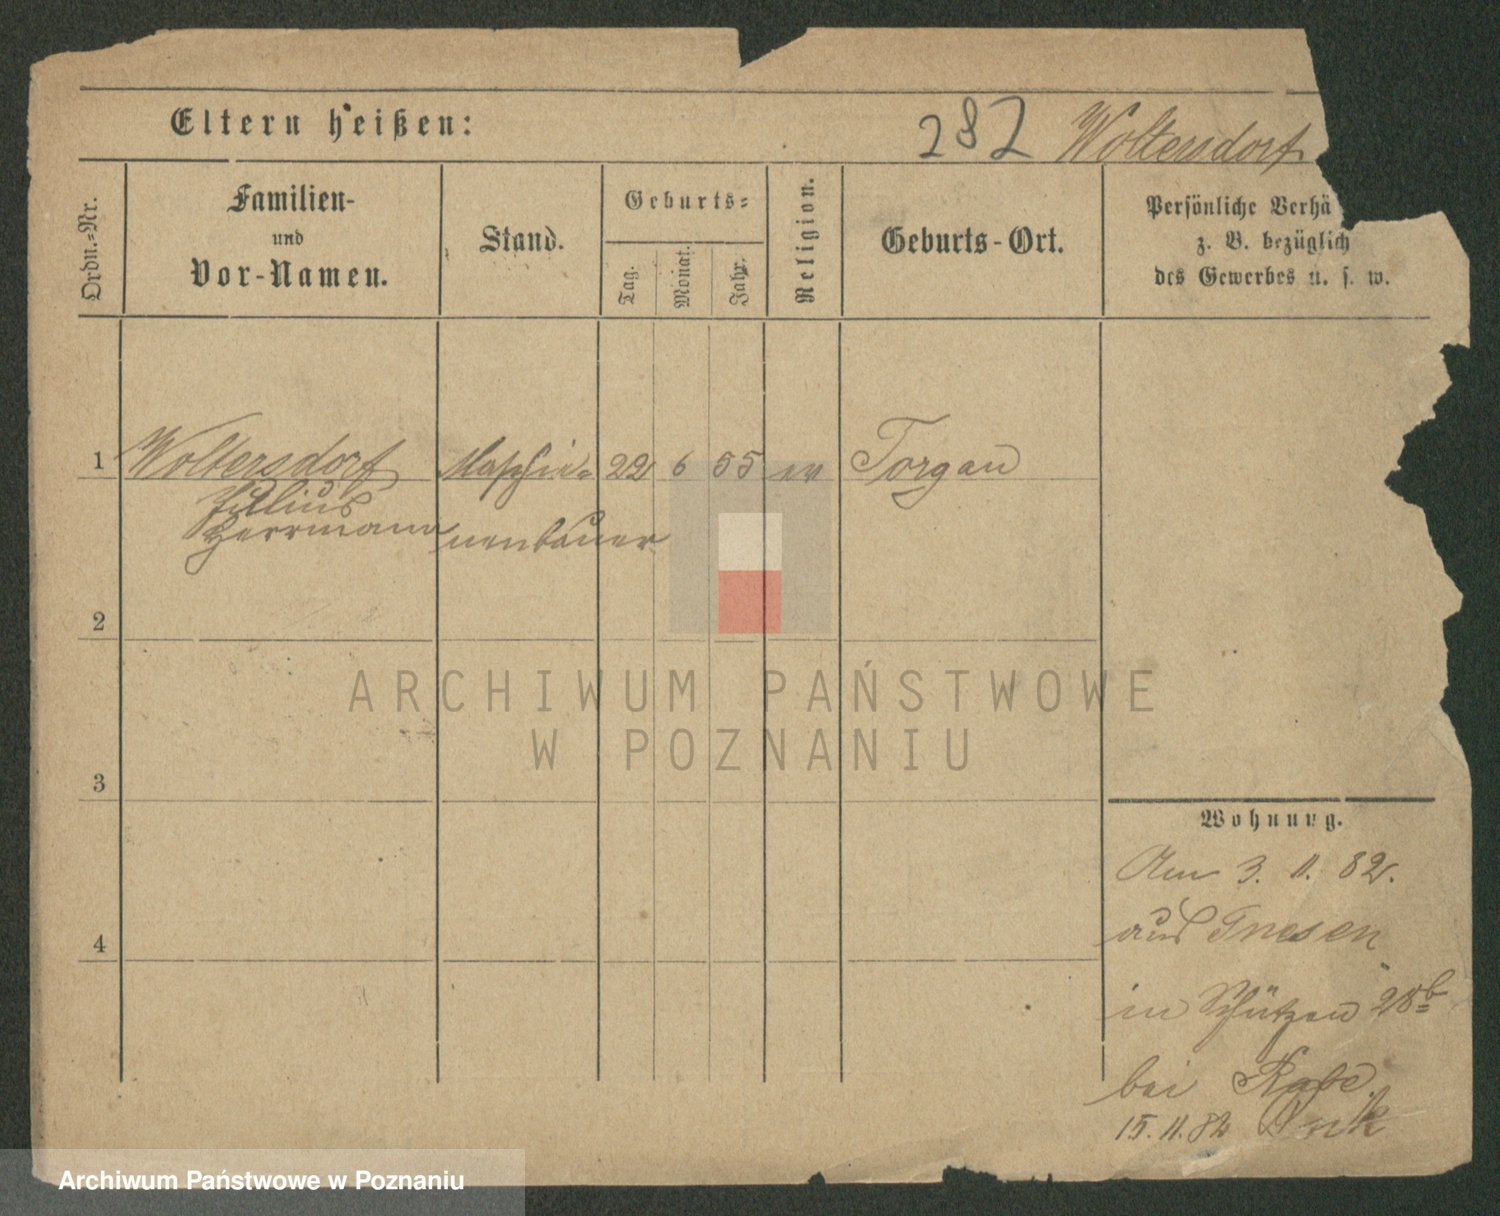 Eltern heißen:
282 Woltersdorf
Ordn.=Nr.
Familien-
und
Vor-Namen.
Stand.
Geburts=
Tag.
Monat.
Jahr.
Religion.
Geburts-Ort.
Persönliche Verhä
z. B. bezüglich
des Gewerbes u. s. w.
1 Woltersdorf Maschin= 22 6 55 ev Torgau
Julius
Herrmann nenbauer
2
ARCHIWUM PAŃSTWOWE
W POZNANIU
3
Wohnung.
Am 3. 11. 82.
aus Gnesen
4
in Schützen 28b
bei Rabe.
15.11.82
Archiwum Państwowe w Poznaniu